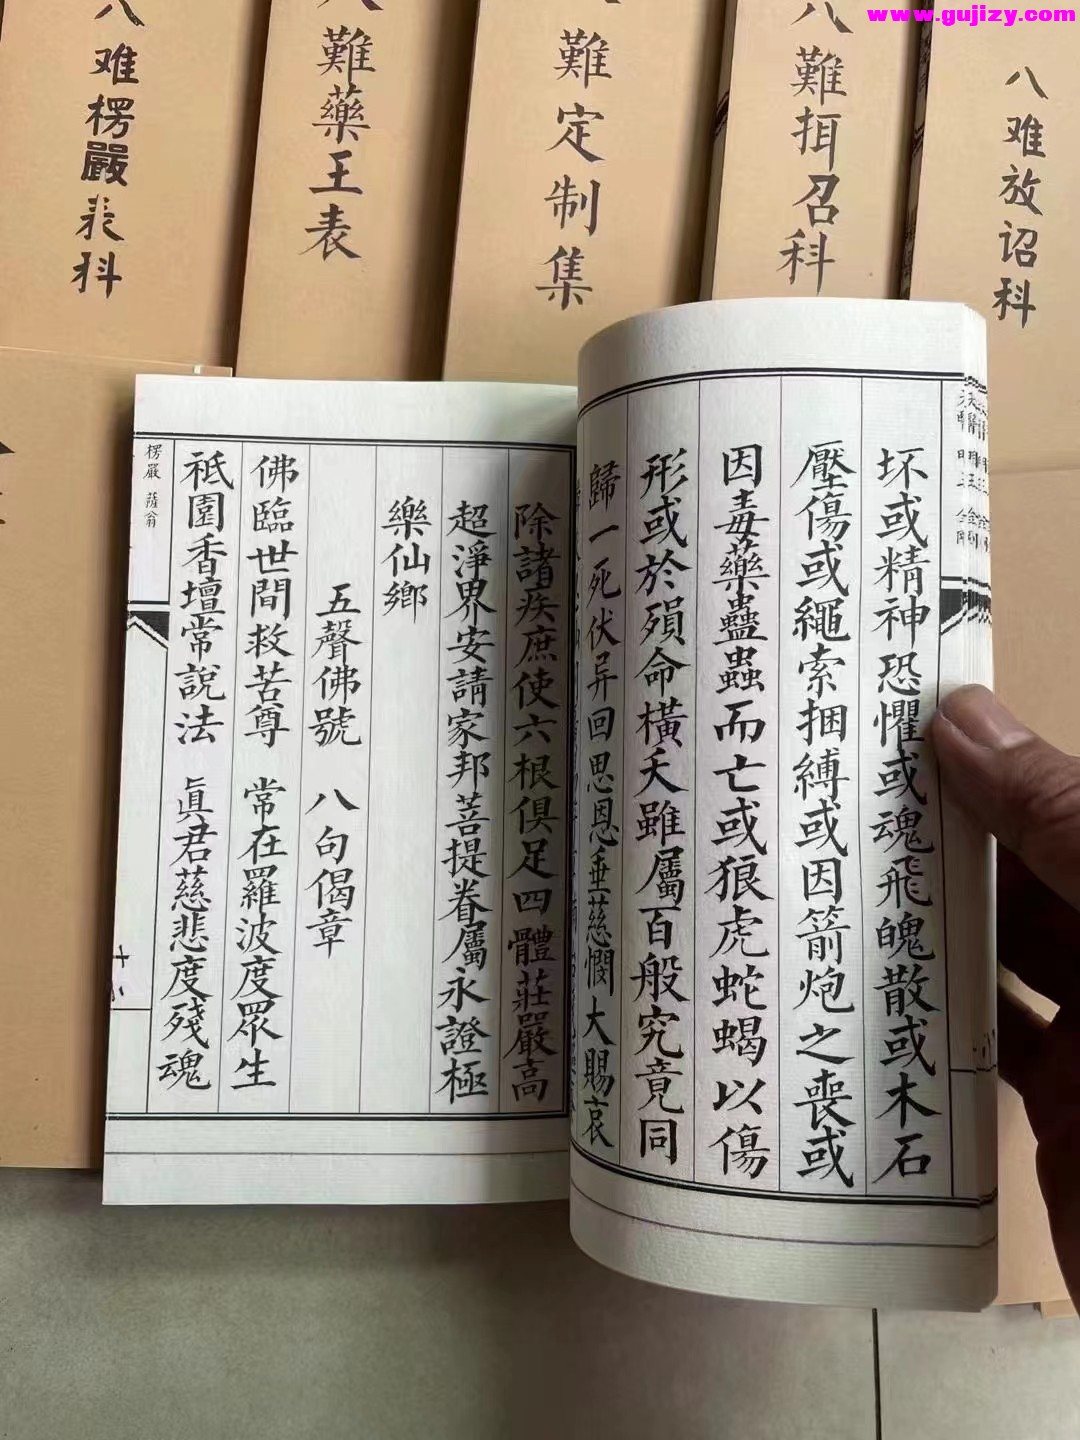 www.gujizy.com
八难放诏科
八難揖召科
難定制集
難藥王表
难楞嚴表科
坏或精神恐懼或魂飛魄散或木石
壓傷或繩索捆縛或因箭炮之喪或
因毒藥蠱蟲而亡或狼虎蛇蝎以傷
形或於殞命橫夭雖屬百般究竟同
歸一死伏异回思恩垂慈憫大賜哀
除諸疾庶使六根俱足四體莊嚴高
超淨界安請家邦菩提眷屬永證極
樂仙鄉
五聲佛號 八句偈章
佛臨世間救苦尊 常在羅波度眾生
祇園香壇常說法 眞君慈悲度殘魂
楞嚴 薩翁